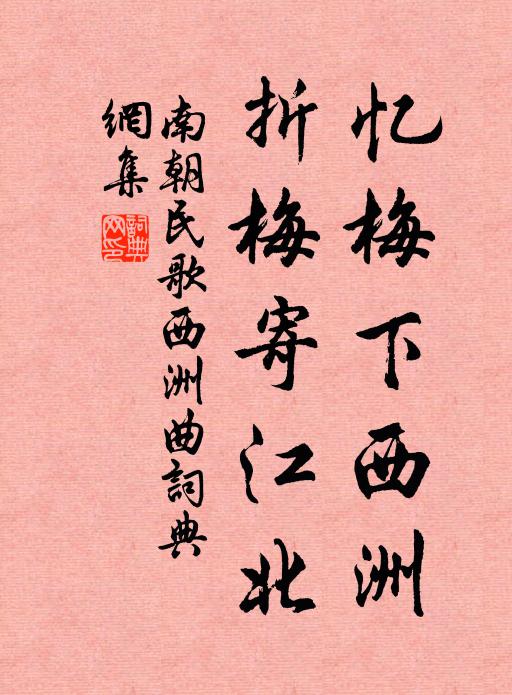 忆梅下西洲
折梅寄江北
南朝民歌西洲曲詞典
網集
詞典网印